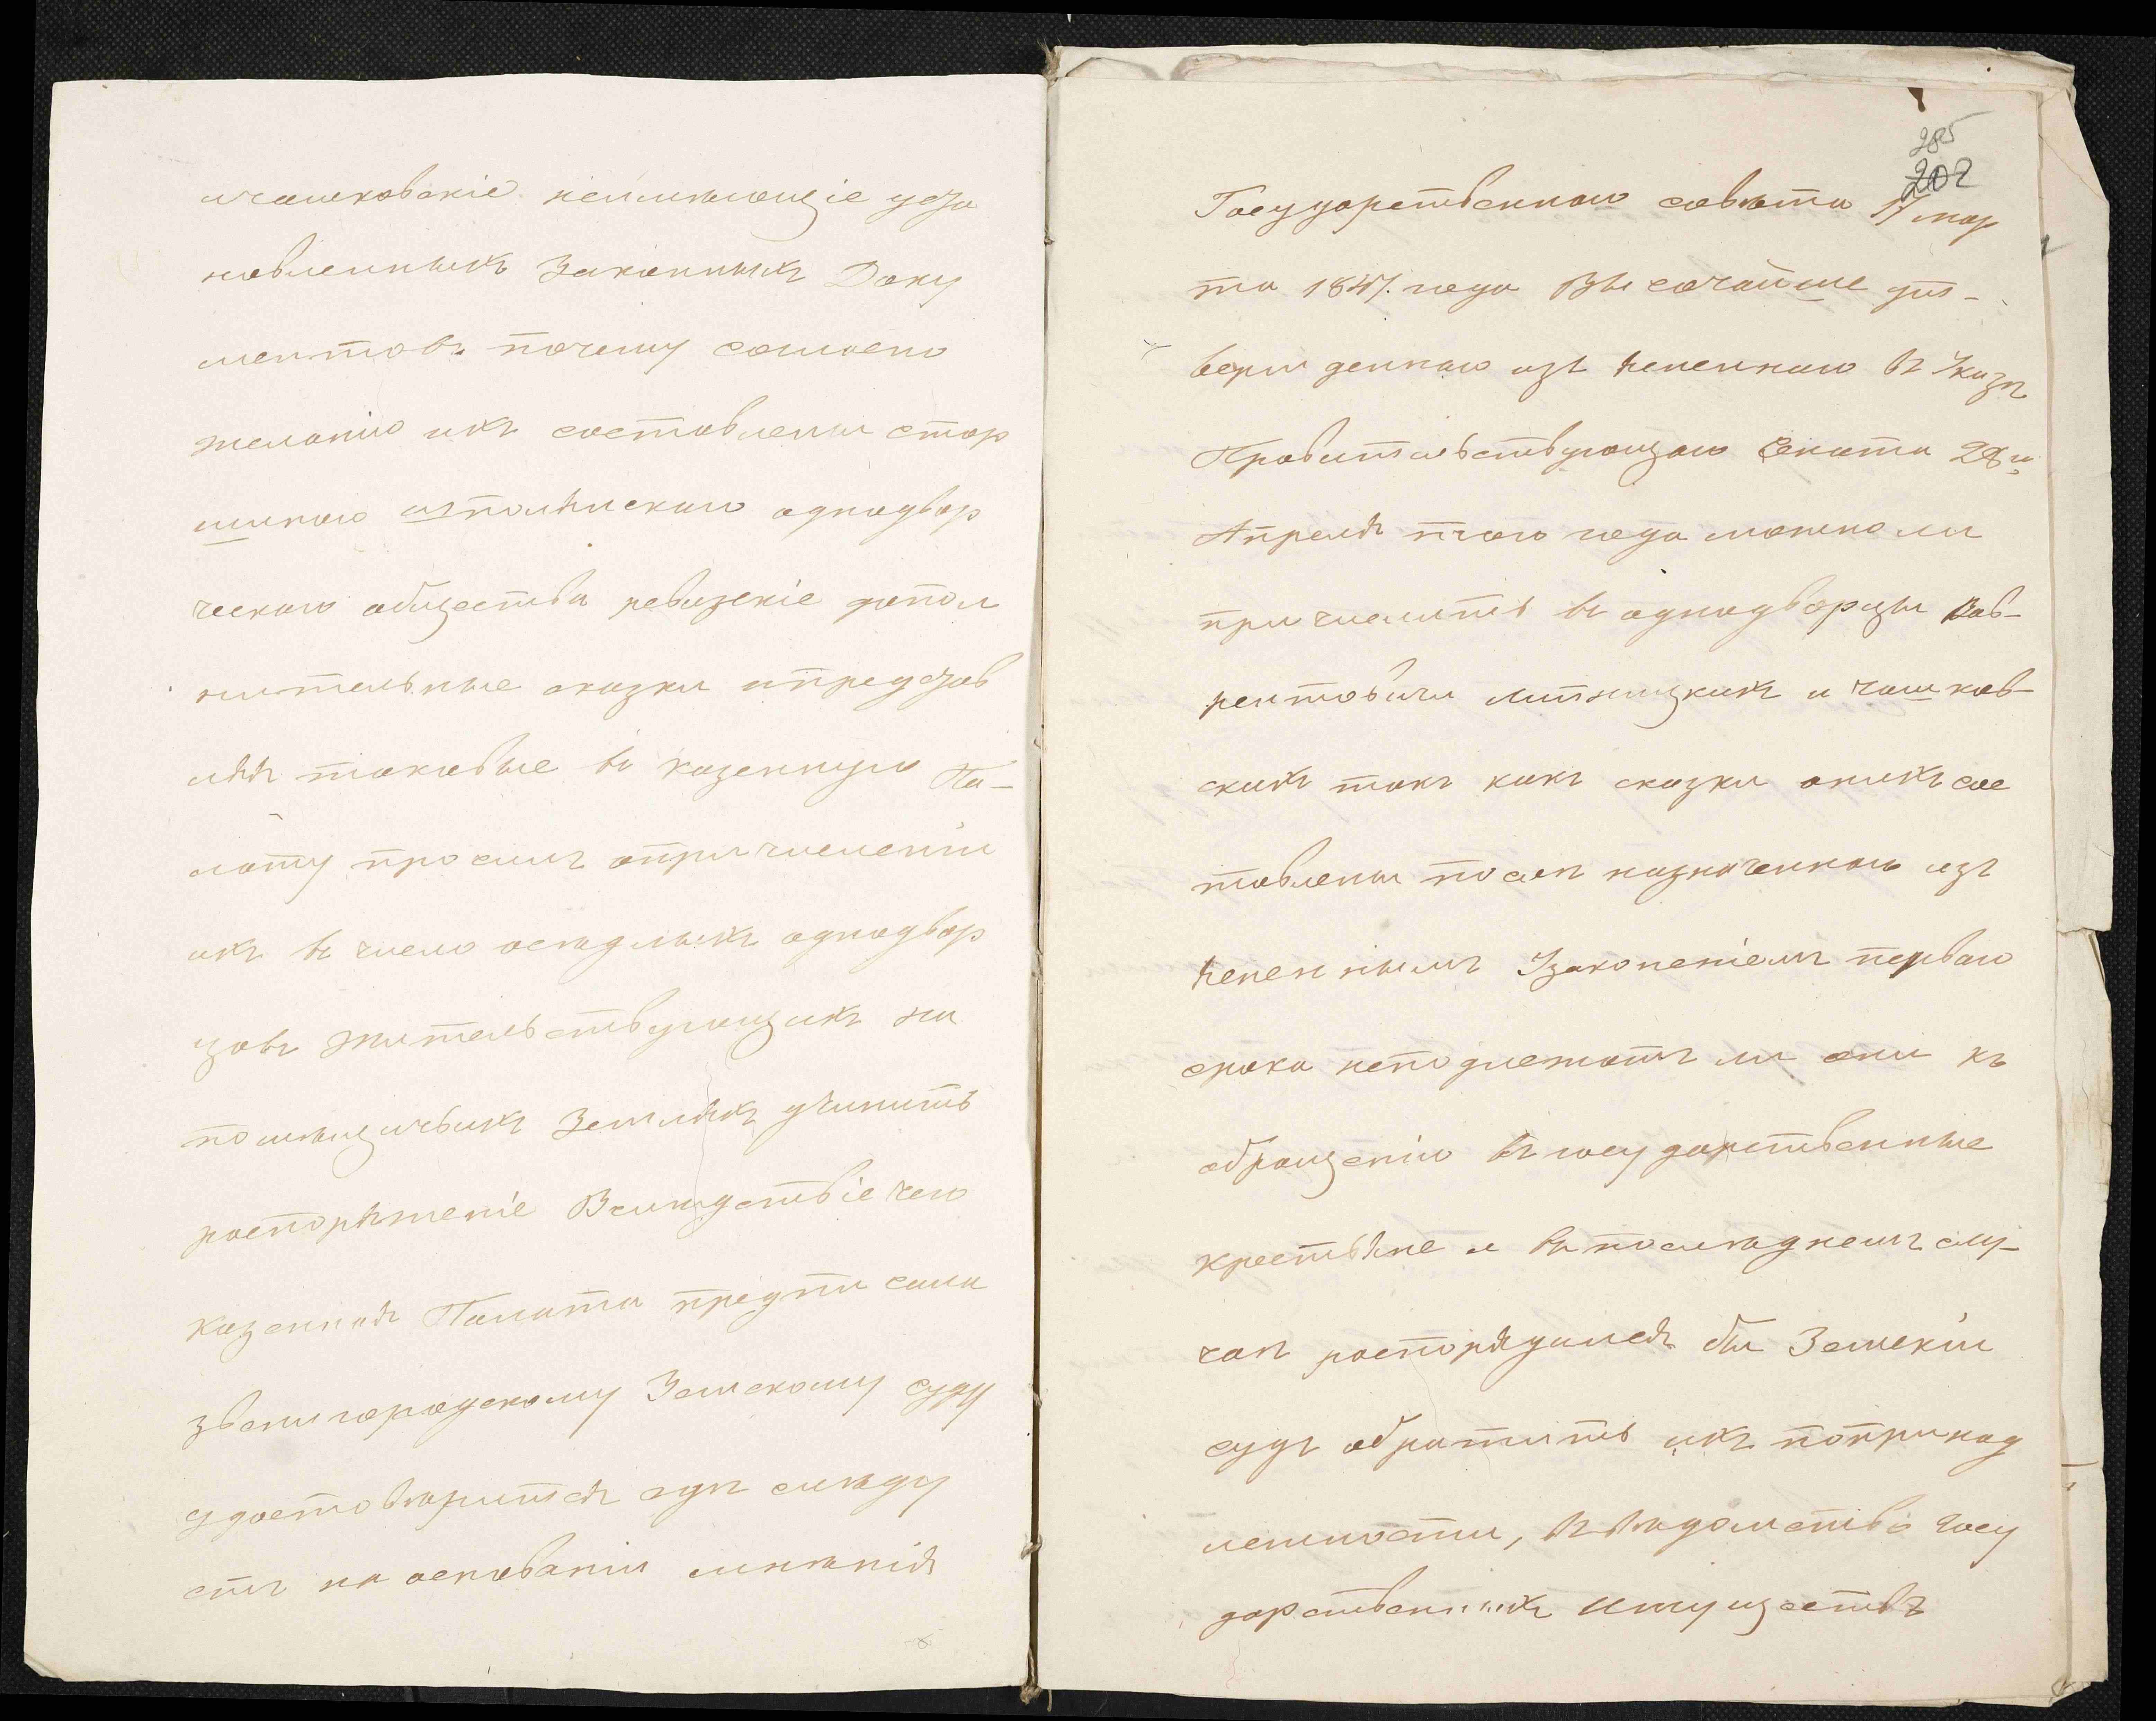 ичашковскіе неимѣющіе уста
новленныхъ Законныхъ Доку
ментовъ почему согласно
желанію ихъ составлены стар
шиною изполянскаго однодвор
ческаго общества ревизскіе допол
нительные сказки ипредстав
ляя таковые въ казенную Па-
лату просилъ опричисленіи
ихъ въ число осѣдлыхъ однодвор
цовъ жительствующихъ на
помѣщичьихъ Земляхъ учинить
распоряженіе Вслѣдствіе чего
казенная Палата предписала
звенигородскому Земскому суду
удостовѣрится одѣ слѣду
етъ на основаніи мнѣнія
285
202
Государственнаго совѣта 17 мар
та 1847. года Высочайше ут-
вержденнаго изъясненнаго въ Указѣ
Правительствующаго Сената 28 и
Апреля того года можноли
причислить въ однодворцы Лав-
рентовича Липницкихъ и чашков-
скихъ такъ какъ сказки онихъ сос
тавлены послѣ назначеннаго изъ
ясненнымъ Узаконеніемъ перваго
срока неподлежатъ ли они къ
обращенію въ государственные
крестьяне и въ последнемъ слу-
чаѣ распорядился бы Земскій
судъ обратить ихъ попринад
лежности, въ вѣдомство госу
дарственныхъ имуществъ